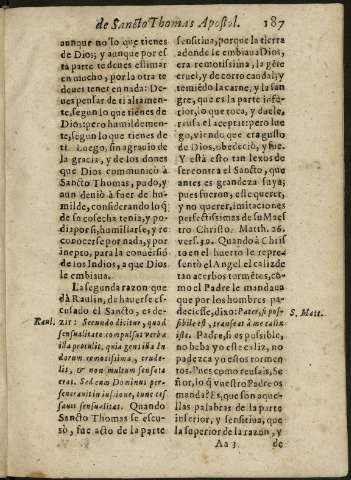 de Sancto Thomas Apostol. 187
aunque no lo que tienes
de Dios; y aunque por es
ta parte te deues estimar
en mucho, por la otra te
deues tener en nada: De-
ues pensar de ti altamen-
te, segun lo que tienes de
Dios: pero humildemen-
te, segun lo que tienes de
ti. Luego, sin agrauio de
la gracia, y de los dones
que Dios communicò à
Sancto Thomas, pudo, y
aun deuiò à fuer de hu-
milde, considerando lo q̃
de su cosecha tenia, y po-
dia por si, humillarse, y re
conocerse por nada, y por
inepto, para la conuersiõ
de los Indios, a que Dios
le embiaua.
La segunda razon que
dà Raulin, de hauerse es-
cusado el Sancto, es de-
Raul.
zir: Secundo dicitur, quod
sensualitate compulsus verba
illa protulit, quia gens illa In
dorum remotissima, crude-
lis, & non multum sensata
erat. Sed cum Dominus per-
seuerauit in iussione, tunc ces
sauit sensualitas. Quando
Sancto Thomas se escu-
sò, fue acto de la parte
sensitiua, porque la tierra
adonde le embiaua Dios,
era remotissima, la gẽte
cruel, y de corto caudal; y
temiẽdo la carne, y la san
gre, que es la parte infe-
rior, lo que toca, y duele,
reusa el aceptar: pero lue
go, viendo que era gusto
de Dios, obedeciò, y fue.
Y està esto tan lexos de
ser contra el Sancto, que
antes es grandeza suya;
pues fueron, este querer,
y no querer, imitaciones
perfectissimas de su Maes
tro Christo. Matth. 26.
vers. 39. Quando à Chris
to en el huerto le repre-
sentò el Angel el caliz de
tan acerbos tormẽtos, có-
mo el Padre le mandaua
que por los hombres pa-
deciesse, dixo: Pater, si pos-
S. Matt.
sibile est, transeat à me calix
iste. Padre, si es possible,
no beba yo este caliz, no
padezca yo estos tormen-
tos. Pues como reusais, Se
ñor, lo q̃ vuestro Padre os
manda? Es, que son aque-
llas palabras de la parte
inferior, y sensitiua, que
la superior de la razon, y
Aa 3 de